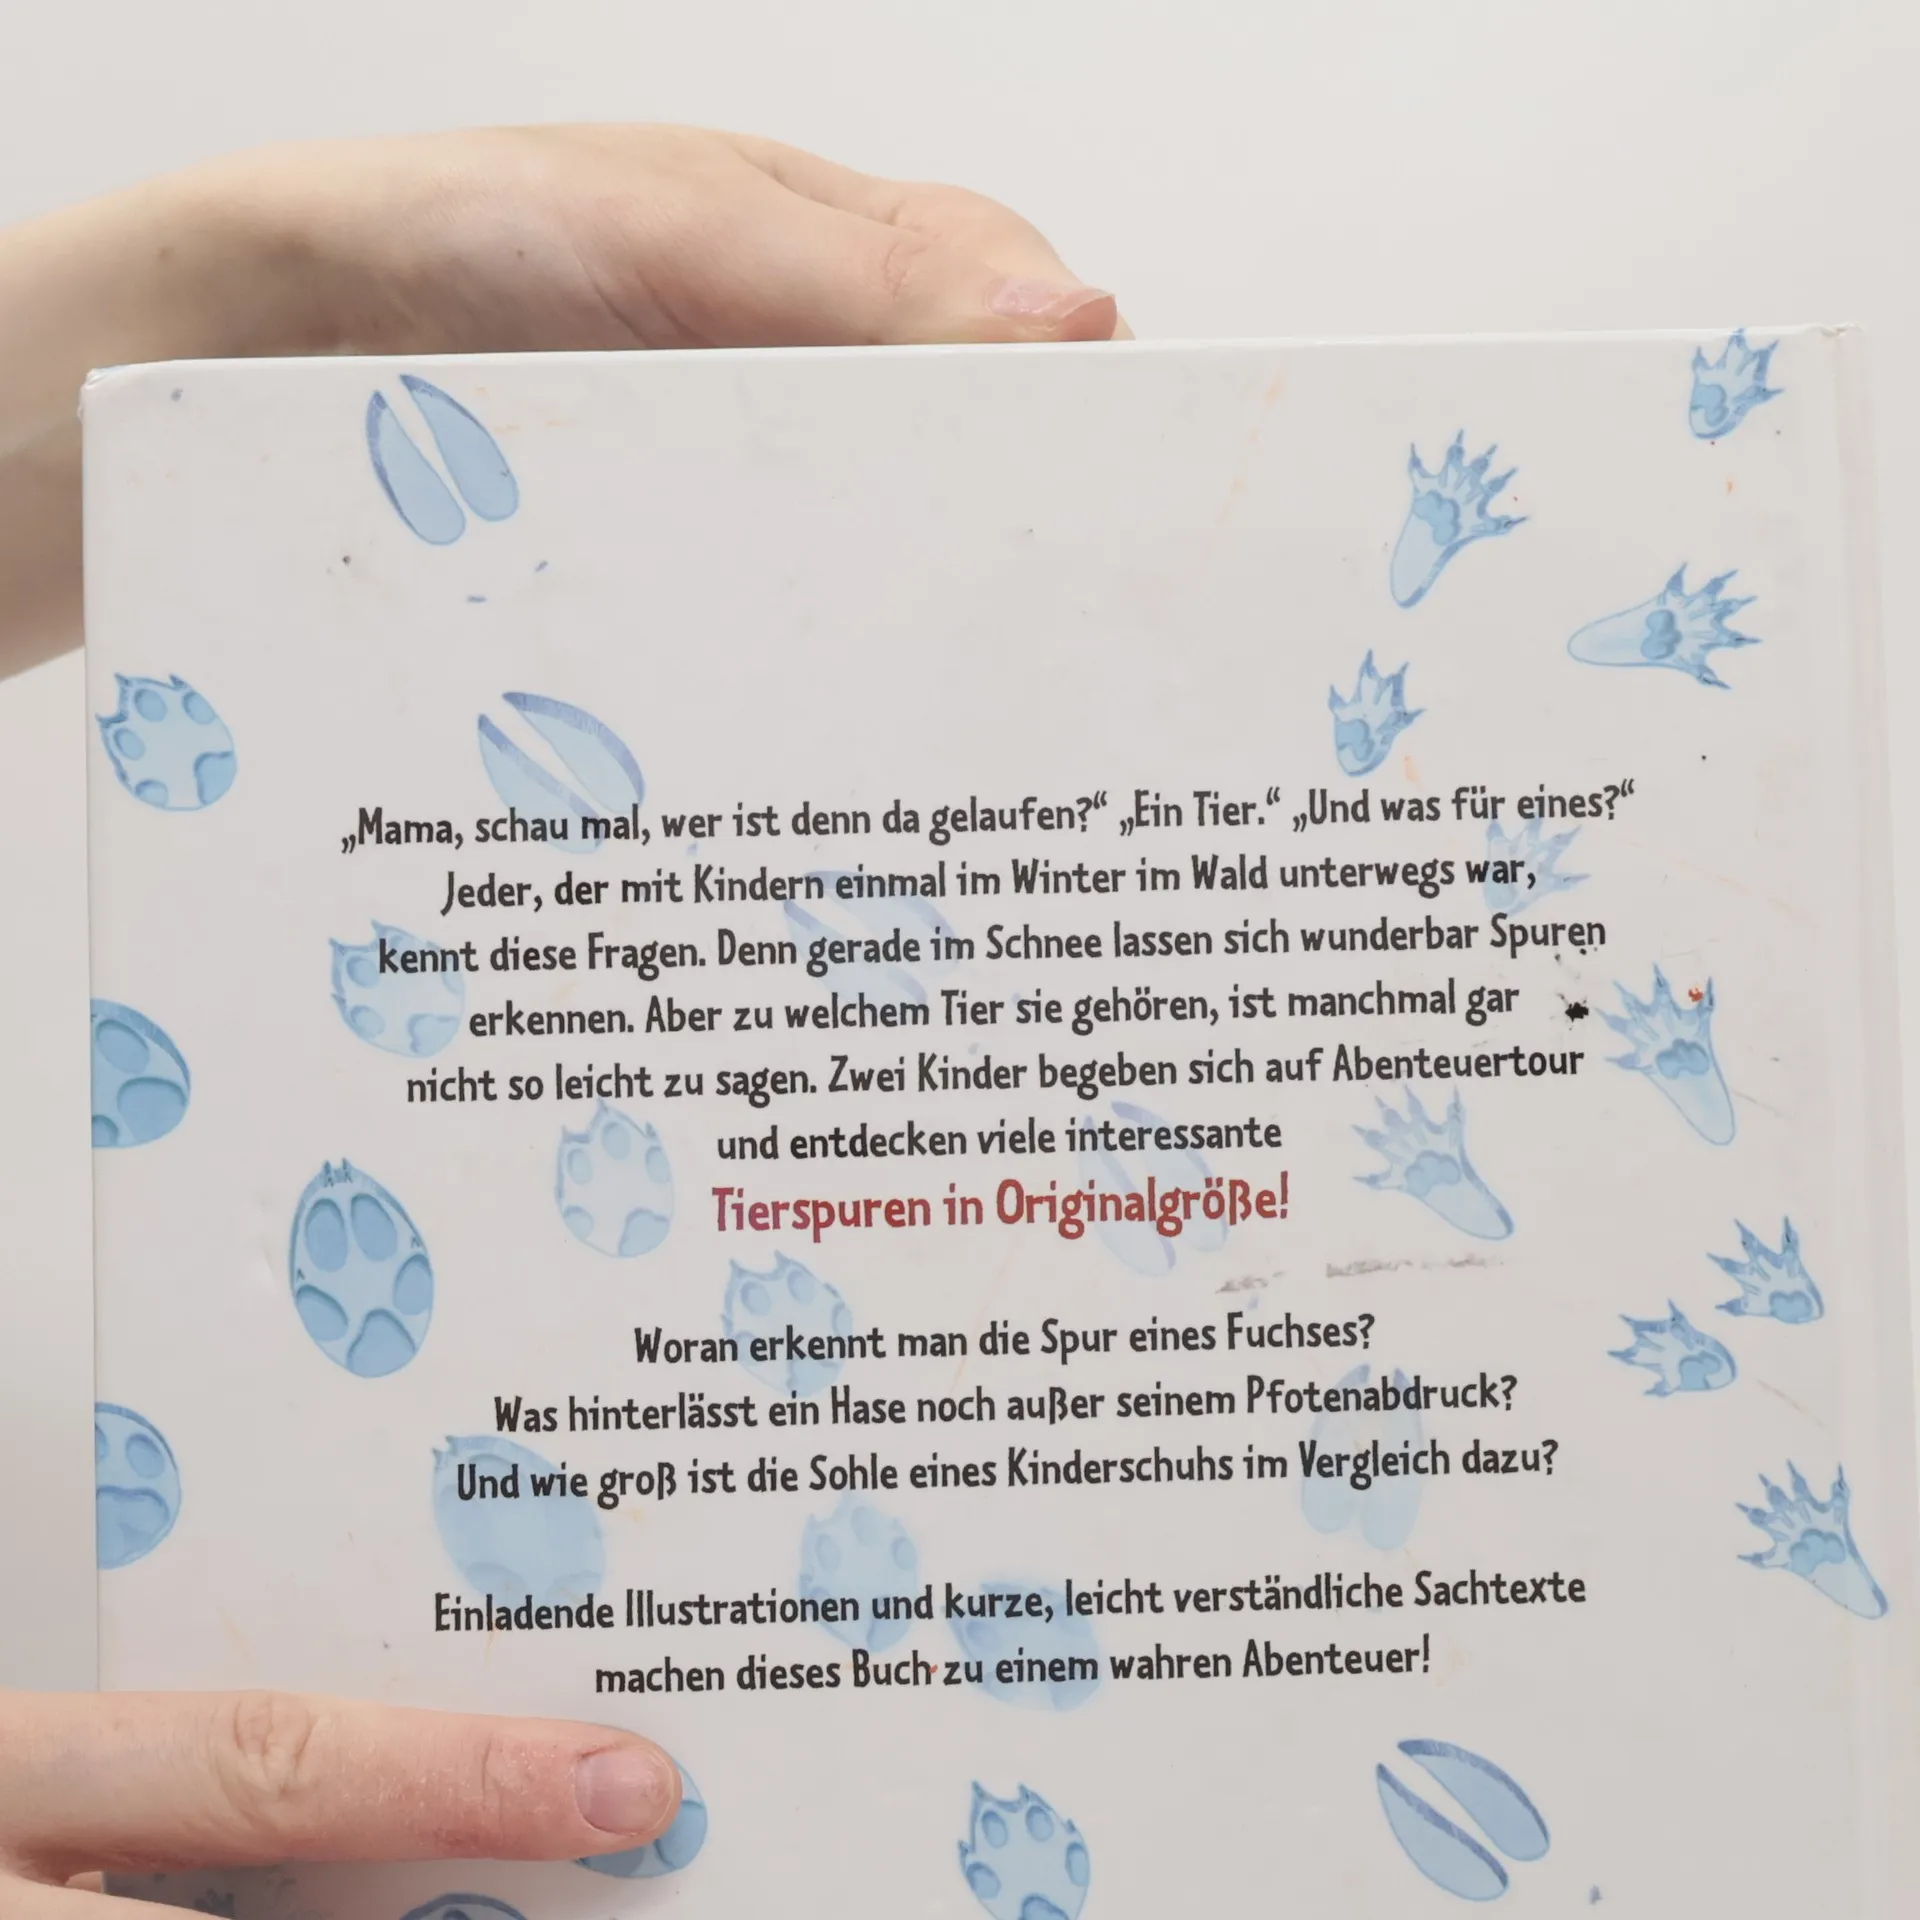 „Mama, schau mal, wer ist denn da gelaufen?“ „Ein Tier.“ „Und was für eines?“
Jeder, der mit Kindern einmal im Winter im Wald unterwegs war,
kennt diese Fragen. Denn gerade im Schnee lassen sich wunderbar Spuren
erkennen. Aber zu welchem Tier sie gehören, ist manchmal gar
nicht so leicht zu sagen. Zwei Kinder begeben sich auf Abenteuertour
und entdecken viele interessante
Tierspuren in Originalgröße!
Woran erkennt man die Spur eines Fuchses?
Was hinterlässt ein Hase noch außer seinem Pfotenabdruck?
Und wie groß ist die Sohle eines Kinderschuhs im Vergleich dazu?
Einladende Illustrationen und kurze, leicht verständliche Sachtexte
machen dieses Buch zu einem wahren Abenteuer!